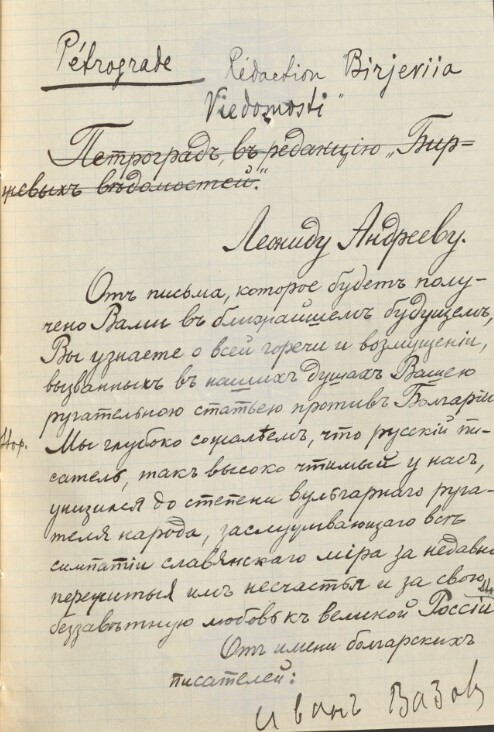 Pétrograde Rédaction Birjeviia
Viedomosti"
Петроградъ, въ редакцію „Бир-
жевыхъ вѣдомостей".
Леониду Андрееву.
Отъ письма, которое будетъ полу-
чено Вами въ ближайшемъ будущемъ,
Вы узнаете о всей горечи и возмущеніи,
вызванныхъ въ нашихъ душахъ Вашею
ругательною статьею противъ Болгаріи
Мы глубоко сожалѣемъ, что русскій пи-
сатель, такъ высоко чтимый у насъ,
унизился до степени вульгарнаго руга-
теля народа, заслуживающаго всѣ
симпатіи славянскаго міра за недавно
пережитыя имъ несчастья и за свою
беззавѣтную любовь къ великой Россіи
Отъ имени болгарскихъ
писателей:
Иванъ Вазовъ